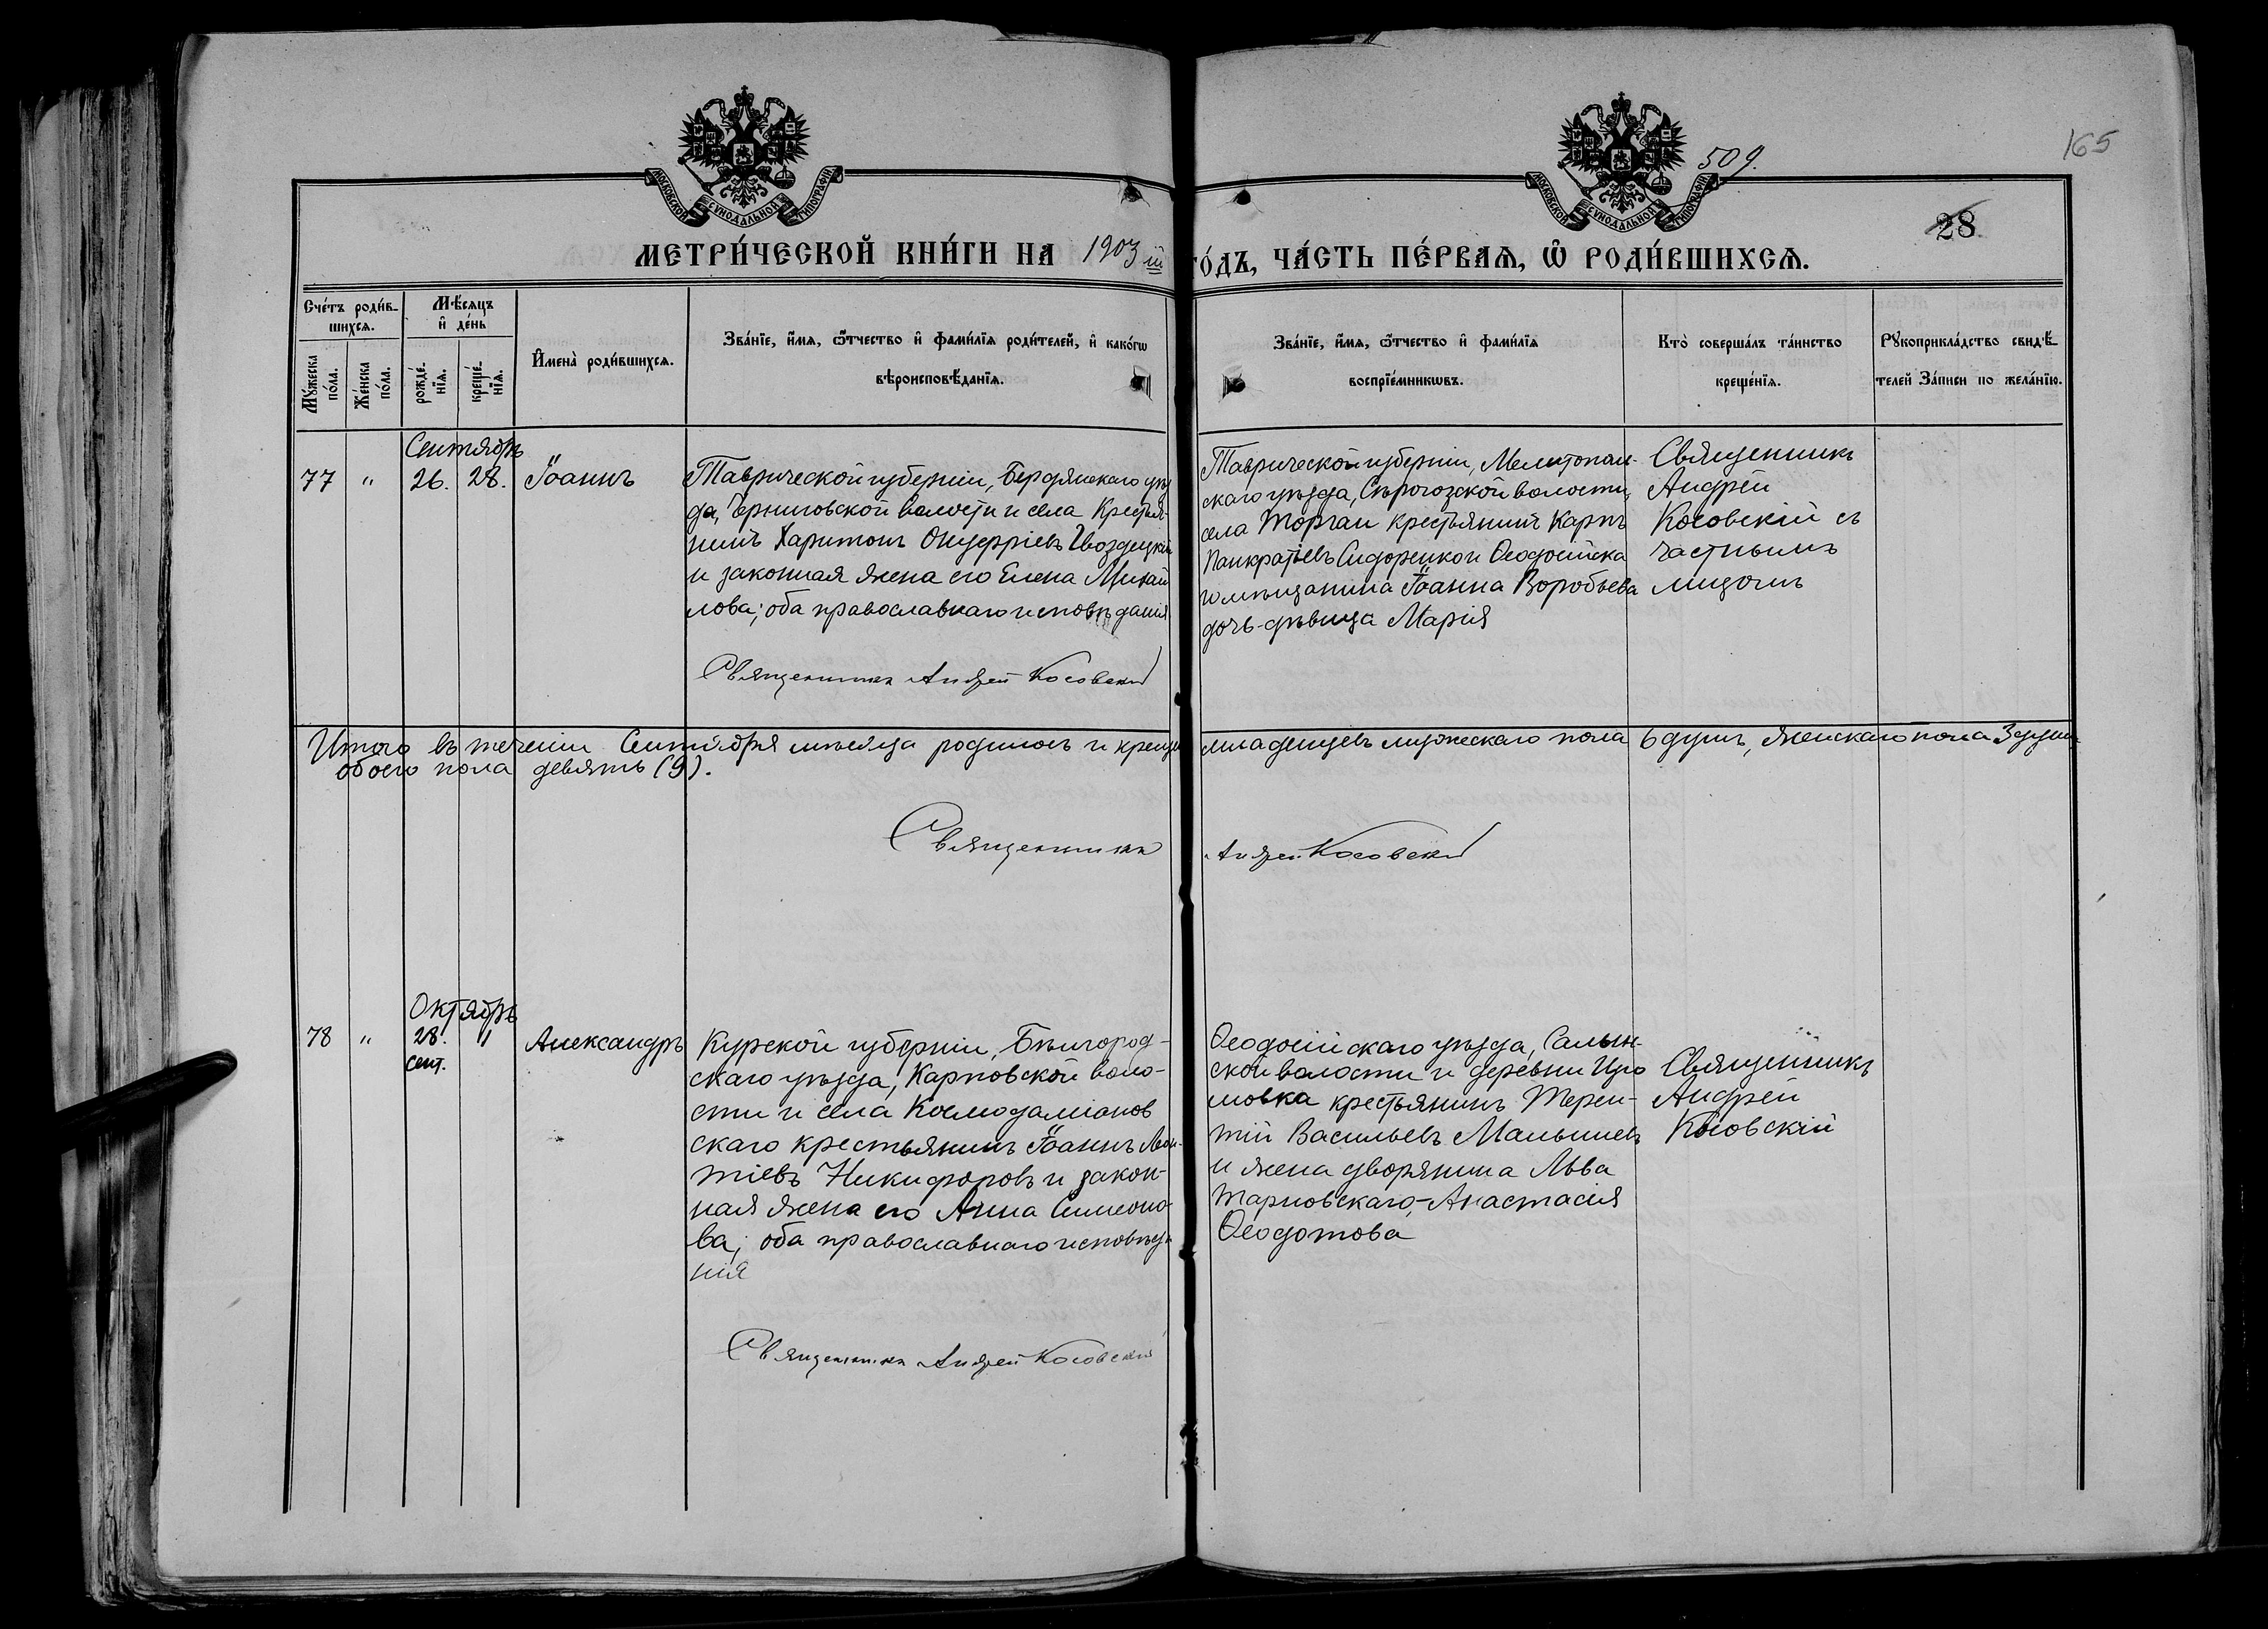 509.
165
28
МОСКОВСКОЙ СѴНОДАЛЬНОЙ ТИПОГРАФІИ
МОСКОВСКОЙ СѴНОДАЛЬНОЙ ТИПОГРАФІИ
МЕТРИ́ЧЕСКОЙ КНИ́ГИ НА 1903 й ГО́ДЪ, ЧА́СТЬ ПЕ́РВАѦ, Ѡ҆ РОДИ́ВШИХСѦ.
Сче́тъ роди́в-
шихсѧ.
Мѣ́сѧцъ
и҆ де́нь
Мꙋ́жеска
по́ла.
Же́нска
по́ла.
рожде́-
нїѧ.
креще́-
нїѧ.
И҆мена̀ роди́вшихсѧ.
Зва́нїе, и҆́мѧ, ѻ҆́тчество и҆ фами́лїѧ роди́телей, и҆ како́гѡ
вѣроисповѣ́данїѧ.
Зва́нїе, и҆́мѧ, ѻ҆́тчество и҆ фами́лїѧ
воспрїе́мникѡвъ.
Кто̀ соверша́лъ та́инство
креще́нїѧ.
Рꙋкоприкла́дство свидѣ́-
телей за́писи по жела́нїю.
Сентябрь
77 " 26. 28. Іоаннъ
Таврической губерніи, Бердянскаго уѣз
да, Черниговской волости и села Крестья-
нинъ Харитонъ Онуфріевъ Гвоздецкій
и законная жена его Елена Михаи
лова; оба православнаго исповѣданія
Священникъ Андрей Косовскій
Таврической губерніи, Мелитополь-
скаго уѣзда, Сѣрогозской волости,
села Торгаи крестьянинъ Карпъ
Панкратіевъ Сидоренко и Ѳеодосійска
го мѣщанина Іоанна Воробьева
дочь-дѣвица Марія
Священникъ
Андрей
Косовскій съ
частнымъ
лицомъ
Итого въ теченіи Сентября мѣсяца родилось и крещен младенцевъ мужескаго пола 6 душъ, женскаго пола 3 души
обоего пола девять (9).
Священникъ Андрей Косовскій
Октябрь
78 " 28. " Александръ
Сент.
Курской губерніи, Бѣлгород-
скаго уѣзда, Карповской воло-
сти и села Космодаміанов
скаго крестьянинъ Іоаннъ Леон-
тіевъ Никифоровъ и закон-
ная жена его Анна Симеоно-
ва; оба православнаго исповѣда
нія
Священникъ Андрей Косовскій
Ѳеодосійскаго уѣзда, Салын-
ской волости и деревни
крестьянинъ Терен-
тій Васильевъ Малышевъ
и жена дворянина Льва
Тарновскаго-Анастасія
Ѳеодотова
Священникъ
Андрей
Косовскій